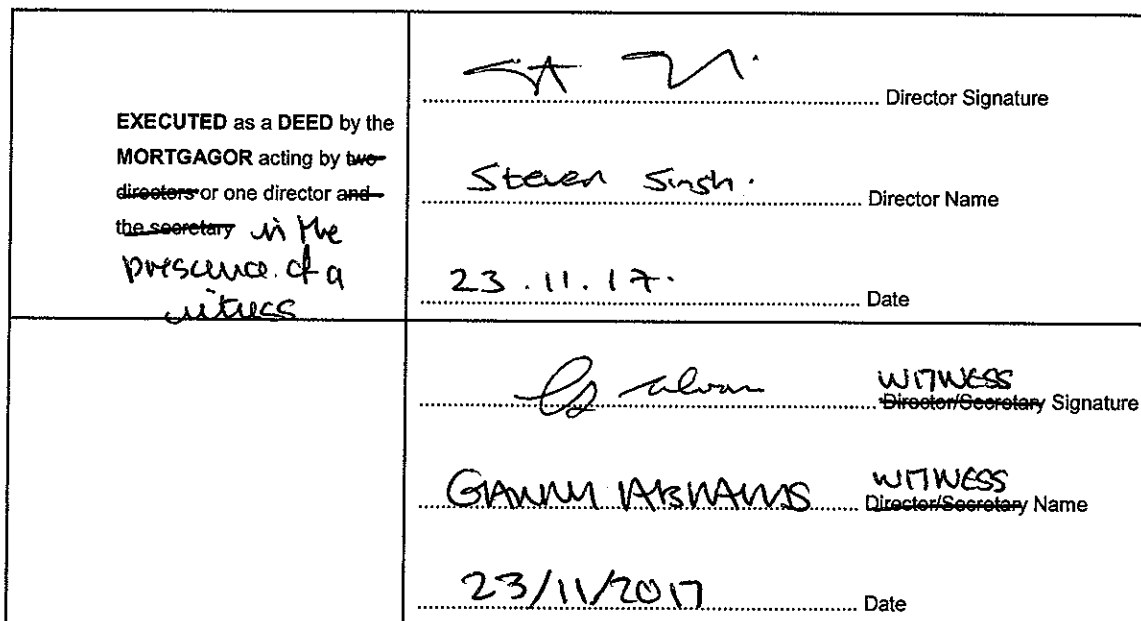 EXECUTED as a DEED by the
MORTGAGOR acting by two
directors or one director and
the secretary in the
presence of a
witness
Director Signature
Steven Singh.
Director Name
23.11.17.
Date
WITNESS
Director/Secretary Signature
WITNESS
ABRAHAMS Director/Secretary Name
23/11/2017
Date